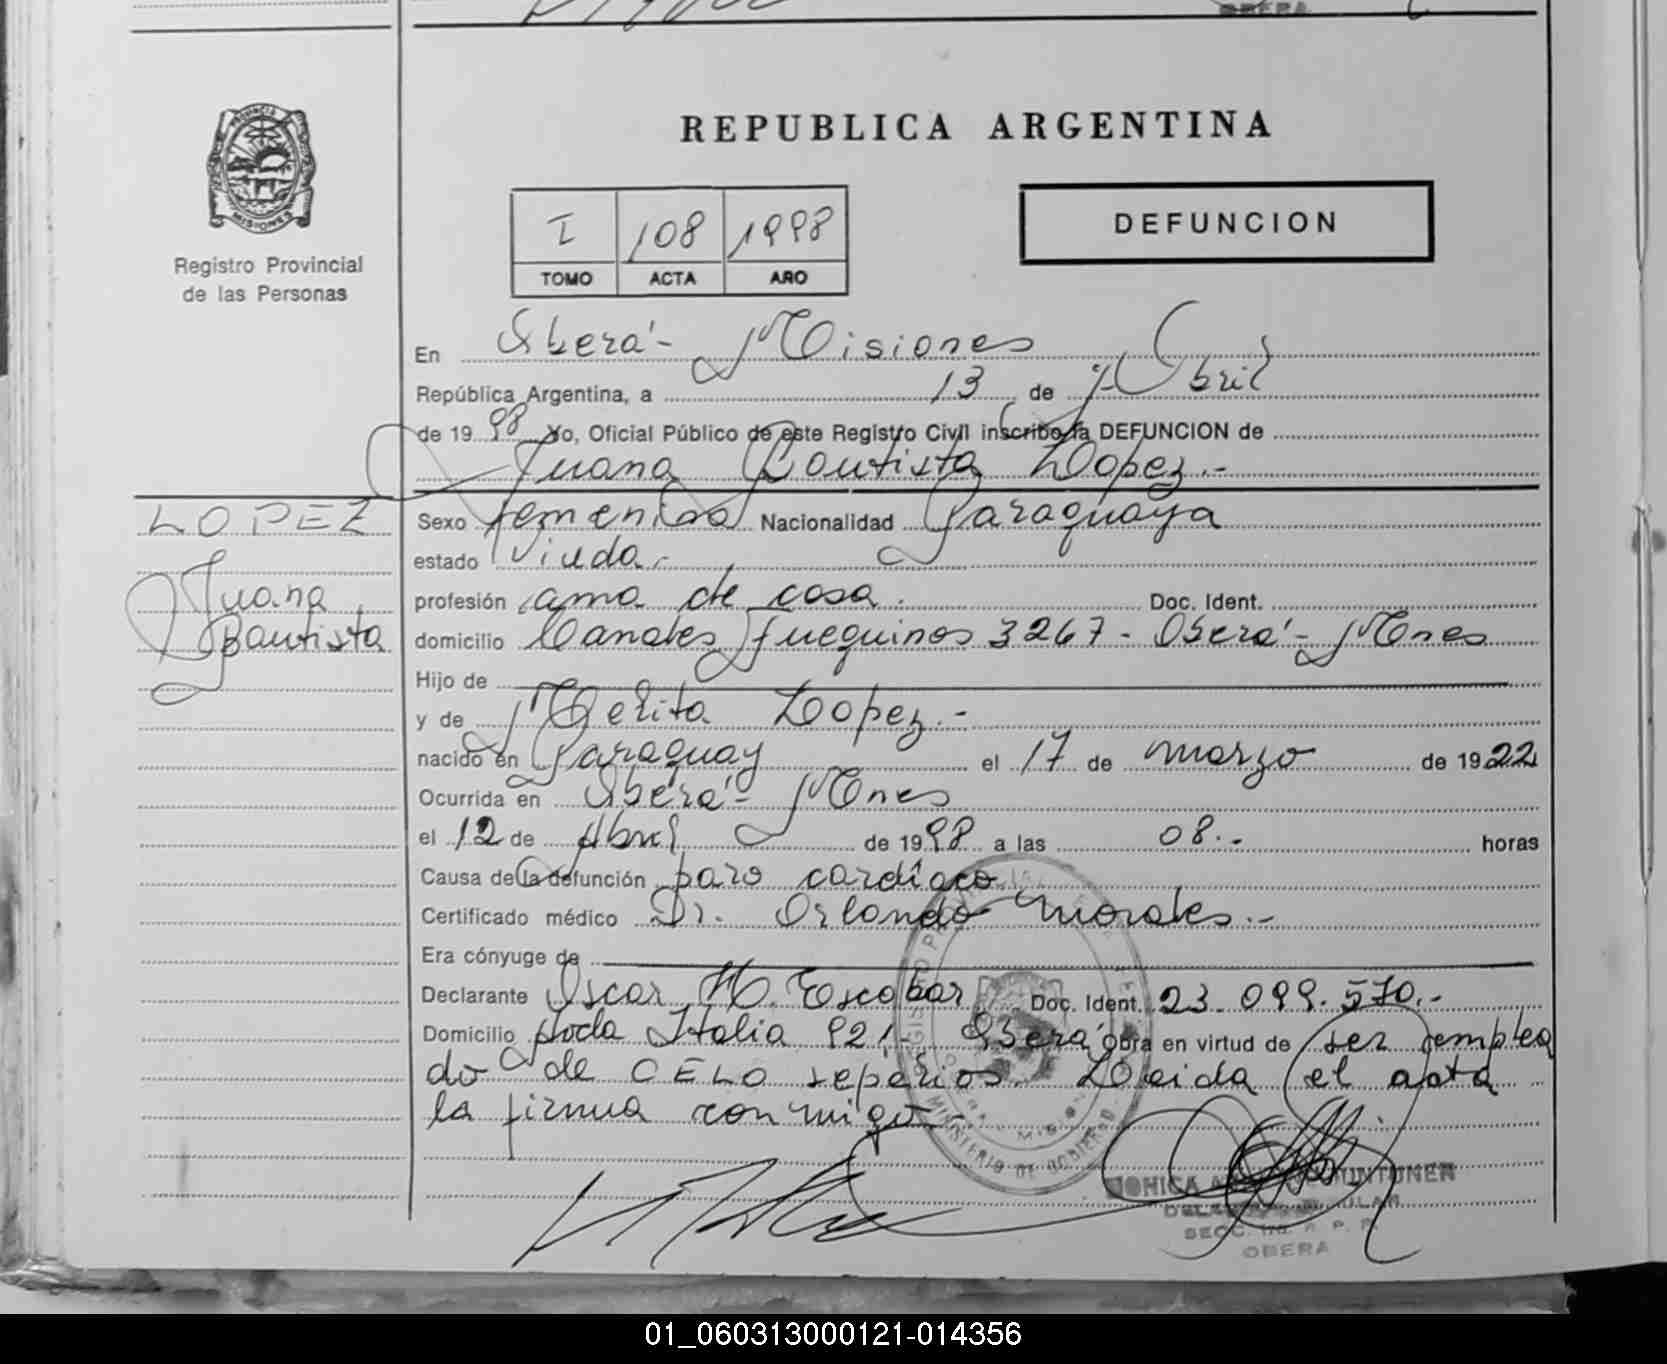 OBERA
REPUBLICA ARGENTINA
PROVINCIA
MISIONES
Registro Provincial
de las Personas
I 108 1998
TOMO ACTA AÑO
DEFUNCION
En Oberá - Misiones
República Argentina, a 13 de Abril
de 19 98 Yo, Oficial Público de este Registro Civil inscribo la DEFUNCION de
Juana Bautista Lopez.-
LOPEZ
Juana
Bautista
Sexo femenino Nacionalidad Paraguaya
estado Viuda.
profesión ama de casa. Doc. Ident.
domicilio Canales Fueguinos 3267 - Oberá - Mnes
Hijo de
y de Melita Lopez.-
nacido en Paraguay el 17 de marzo de 1922
Ocurrida en Oberá - Mnes
el 12 de Abril de 1998 a las 08.- horas
Causa de la defunción paro cardíaco
Certificado médico Dr. Orlando Morales.-
Era cónyuge de
Declarante Oscar H. Escobar Doc. Ident. 23.099.570.-
Domicilio Avda Italia 921 - Oberá obra en virtud de ser emplea
do de CELO sepelios. Leida el acta
la firma conmigo.-
MINISTERIO DE GOBIERNO
OBERA
01_060313000121-014356